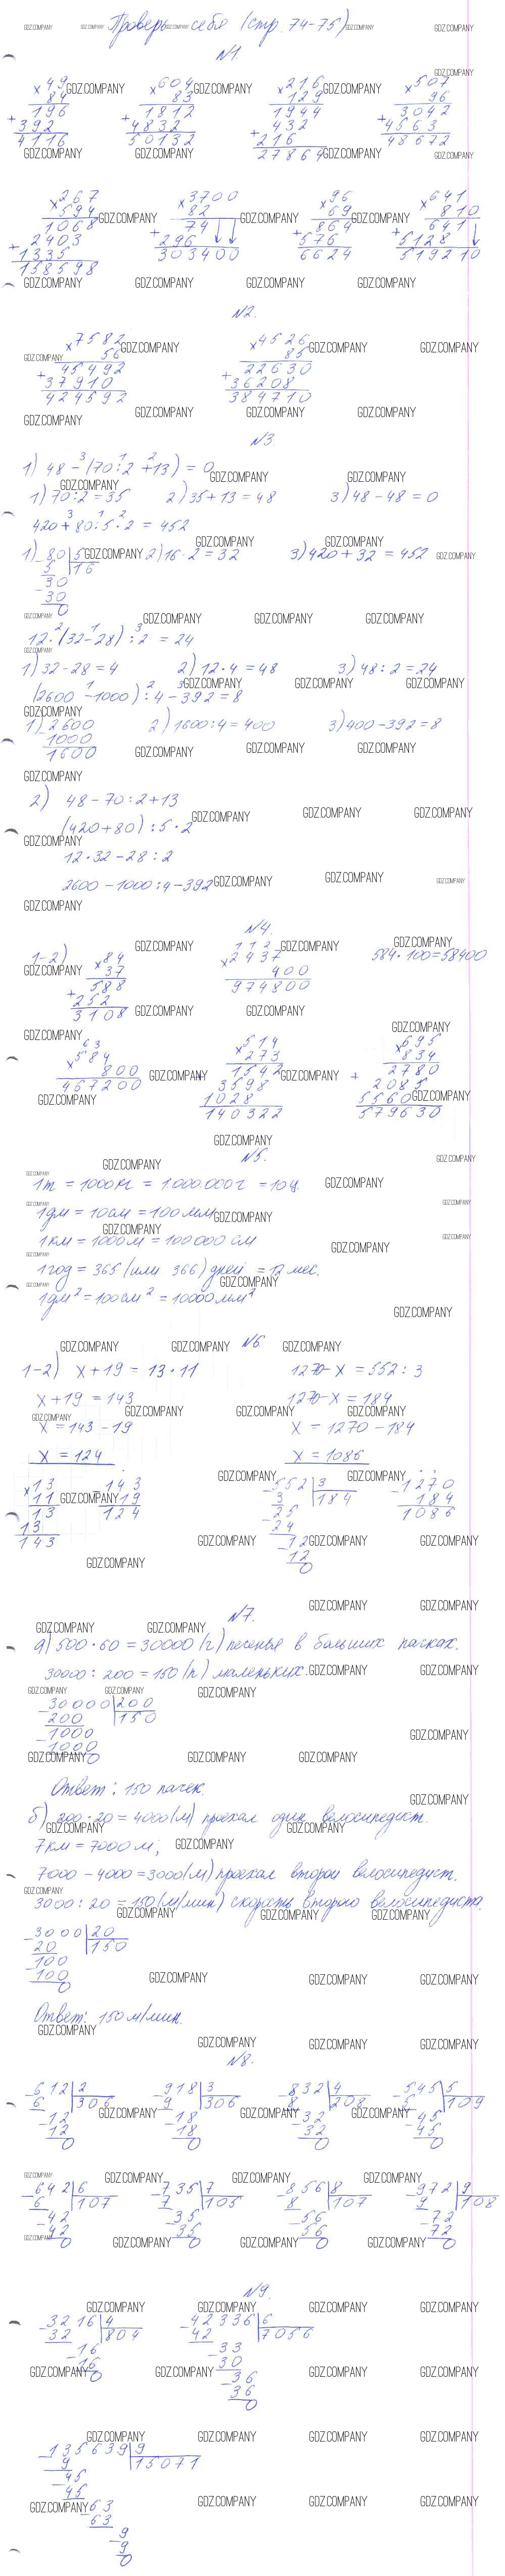 Проверь себя (стр. 74-75)
№1.
×49 ×604 ×216 ×507
84 83 129 96
196 1812 1944 3042
+392 +4832 +432 +4563
4116 50132 216 48672
27864
×267 ×3700 ×96 ×641
594 82 69 810
1068 74 864 641
+2403 +296 +576 +5128
1335 303400 6624 519210
158598
№2.
×7582 ×4526
56 85
+45492 +22630
37910 36208
424592 384710
№3
1) 48 - (70 : 2 + 13) = 0
1) 70 : 2 = 35 2) 35 + 13 = 48 3) 48 - 48 = 0
420 + 80 : 5 · 2 = 452
1) 80 5 2) 16 · 2 = 32 3) 420 + 32 = 452
5 16
30
30
0
12 · (32 - 28) : 2 = 24
1) 32 - 28 = 4 2) 12 · 4 = 48 3) 48 : 2 = 24
(2600 - 1000) : 4 - 392 = 8
1) 2600 2) 1600 : 4 = 400 3) 400 - 392 = 8
1000
1600
2) 48 - 70 : 2 + 13
(420 + 80) : 5 · 2
12 · 32 - 28 : 2
2600 - 1000 : 4 - 392
№4.
1-2) ×84 ×2437 584 · 100 = 58400
37 400
588 974800
+252
3108
×584 ×514 ×695
800 273 834
467200 1542 2780
+3598 +2085
1028 5560
140322 579630
№5.
1т = 1000кг = 1.000.000г = 10ц.
1дм = 10см = 100мм
1км = 1000м = 100000см
1год = 365 (или 366) дней = 12 мес.
1дм² = 100см² = 10000мм²
№6
1-2) x + 19 = 13 · 11 1270 - x = 552 : 3
x + 19 = 143 1270 - x = 184
x = 143 - 19 x = 1270 - 184
x = 124 x = 1086
×13 143 552 3 1270
11 19 3 184 184
13 124 25 1086
13 24
143 12
12
0
№7.
а) 500 · 60 = 30000 (г) печенья в больших пачках.
30000 : 200 = 150 (п) маленьких.
30000 200
200 150
1000
1000
0
Ответ: 150 пачек.
б) 200 · 20 = 4000 (м) проехал один велосипедист.
7км = 7000м;
7000 - 4000 = 3000 (м) проехал второй велосипедист.
3000 : 20 = 150 (м/мин) скорость второго велосипедиста.
3000 20
20 150
100
100
0
Ответ: 150 м/мин.
№8.
612 2 918 3 832 4 545 5
6 306 9 306 8 208 5 109
12 18 32 45
12 18 32 45
0 0 0 0
642 6 735 7 856 8 972 9
6 107 7 105 8 107 9 108
42 35 56 72
42 35 56 72
0 0 0 0
№9.
3216 4 42336 6
32 804 42 7056
16 33
16 30
0 36
36
0
135639 9
9 15071
45
45
63
63
9
9
0
GDZ.COMPANY